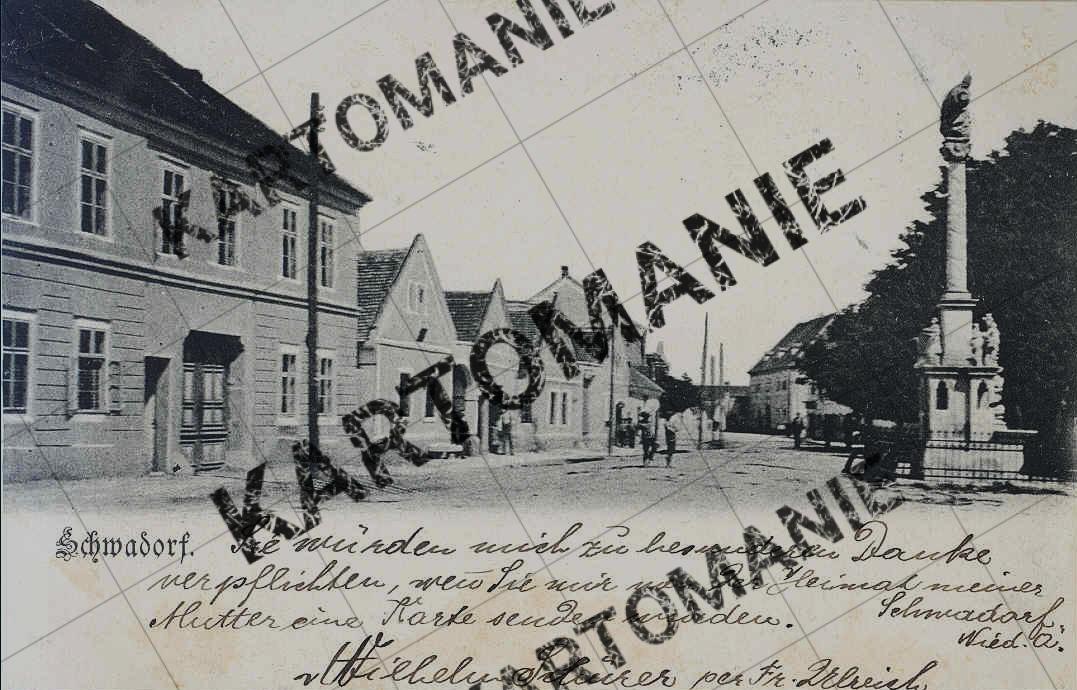 KARTOMANIE
KARTOMANIE
KARTOMANIE
Schwadorf.
Sie würden mich zu besonderem Danke
verpflichten, wen̄ Sie mir der Heimat meiner
Mutter eine Karte senden würden.
Schwadorf,
Nied. Ö.
Wilhelm Schürer per Fr. Ullreich